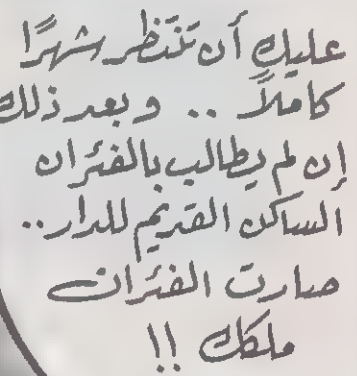 عليك أن تنتظر شهرًا
كاملاً .. وبعد ذلك
إن لم يطالب بالفئران
الساكن القديم للدار..
صارت الفئران
ملكك !!